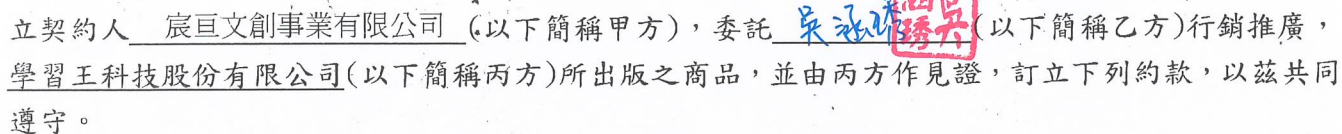 立契約人 宸亘文創事業有限公司 (以下簡稱甲方),委託 吳涵琇 (以下簡稱乙方)行銷推廣,
學習王科技股份有限公司(以下簡稱丙方)所出版之商品,並由丙方作見證,訂立下列約款,以茲共同
遵守。